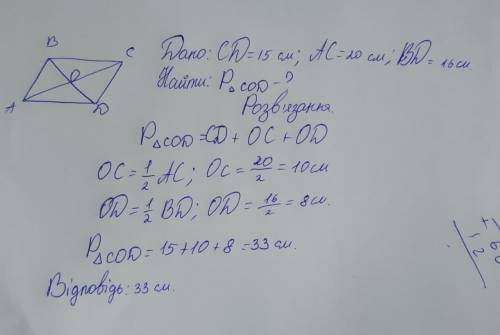 B
C
O
A
D
Дано: CD=15 см; AC=20 см; BD=16см.
Найти: P△COD-?
Розв'язання.
P△COD=CD+OC+OD
OC=1/2 AC; OC=20/2=10см
OD=1/2 BD; OD=16/2=8см.
P△COD=15+10+8=33 см.
Відповідь: 33 см.